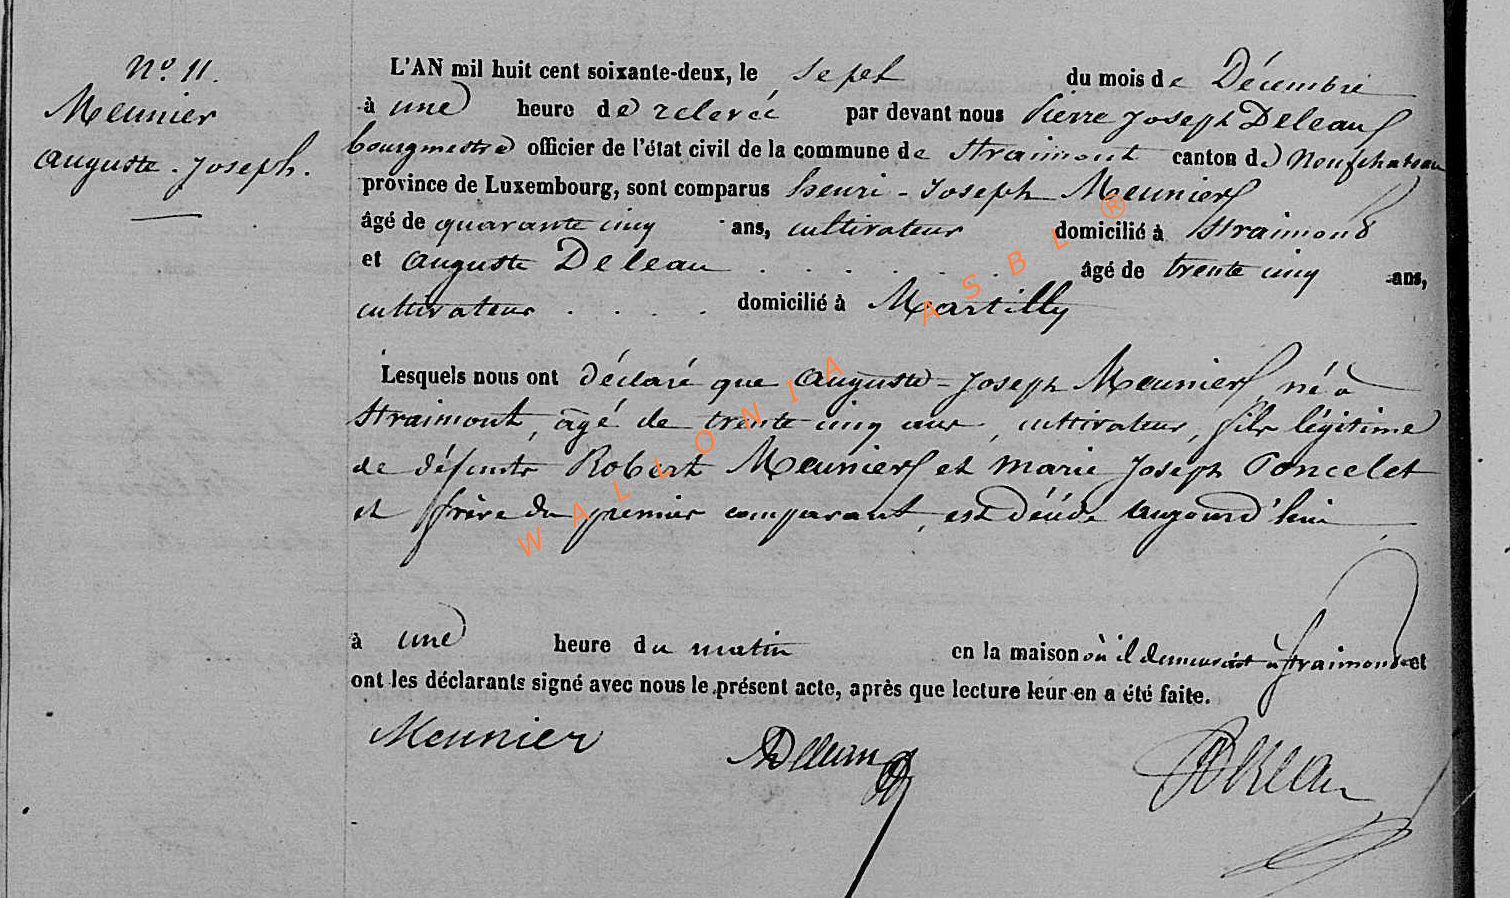 N.º 11.
Meunier
Auguste-Joseph.
L'AN mil huit cent soixante-deux, le sept du mois de Décembre
à une heure de relevée par devant nous Pierre Joseph Deleau
bourgmestre officier de l'état civil de la commune de Straimont canton de Neufchateau
province de Luxembourg, sont comparus henri-Joseph Meunier
âgé de quarante cinq ans, cultivateur domicilié à Straimont
et Auguste Deleau . . . . . . âgé de trente cinq ans,
cultivateur . . . . domicilié à Martilly
Lesquels nous ont déclaré que Auguste-Joseph Meunier, né à
Straimont, âgé de trente cinq ans, cultivateur, fils légitime
de défunts Robert Meunier et marie Joseph Poncelet
et frère du premier comparant, est décédé aujourd'hui
à une heure du matin en la maison où il demeurait à Straimont et
ont les déclarants signé avec nous le présent acte, après que lecture leur en a été faite.
Meunier ADeleau Deleau
WALLONIA ASBL ®